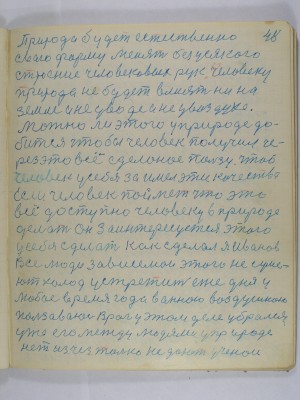 48
Природа будет естественно
свою форму менят без усякого
стюгние человековых рук. Человеку
природа не будет влият ни на
земле и не у воде и не у воздухе.
Можно ли этого у природе до-
бится чтобы человек получил че-
рез это всё сделоное ползу. Чтоб
человек у себя заимел эти качества
Если человек поймет что это
всё доступно человеку в природе
сделат Он заинтересуется этого
у себя сделат как сделал я Иванов
Все люди зависемои этого не суме-
ют холод устретит ене дня у
любое время года ванною воздушною
ползаваюс Враг у этом деле убрался
уже его между людями у природе
нет из чез толко не дают ученои